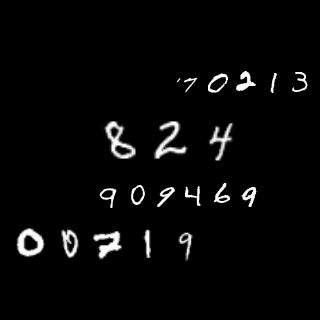 70213
824
909469
00719